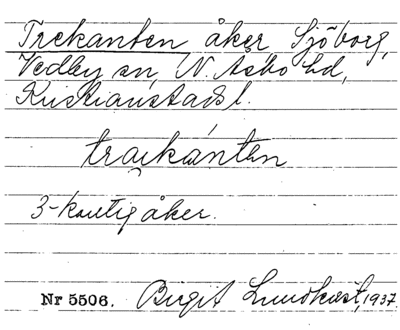 Trekanten åker Sjöborg,
Vedby sn, N. Åsbo hd,
Kristianstads l.
traikánten
3-kantig åker.
Nr 5506. Birgit Lundkvist, 1937.